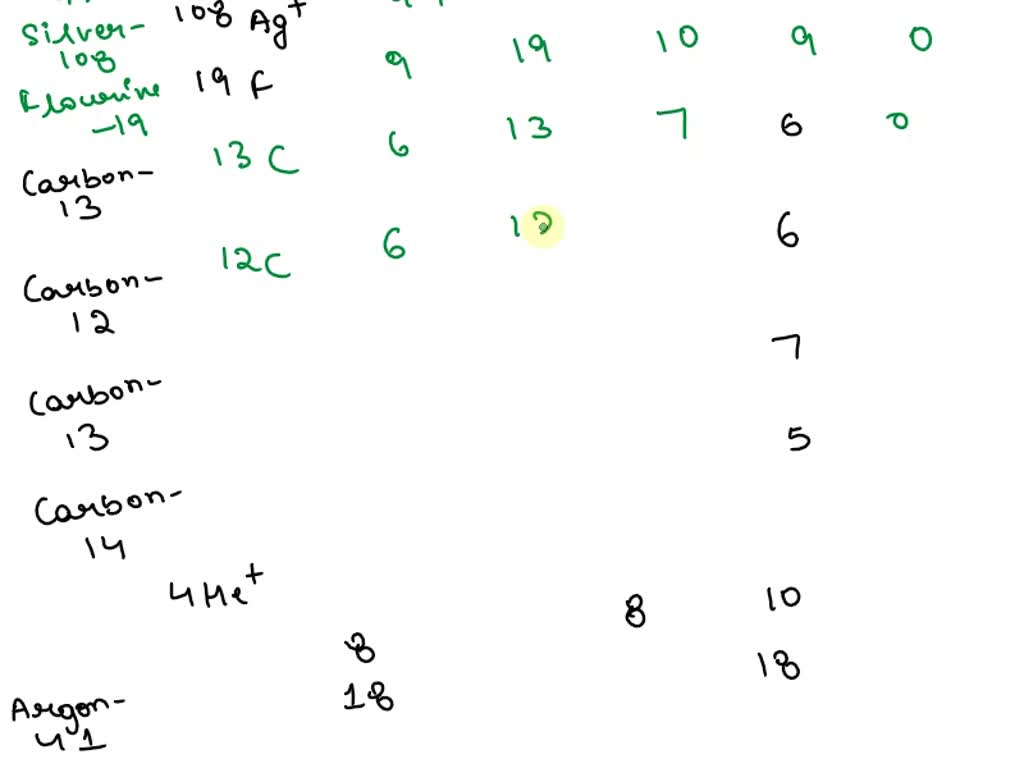 Silver- 108 Ag+
108 9 19 10 9 0
Flourine 19 F
-19
13 C 6 13 7 6 0
Carbon-
13
12C 6 12 6
Carbon-
12
7
Carbon-
13
5
Carbon-
14
4He+
8 8 10
Argon- 18 18
41